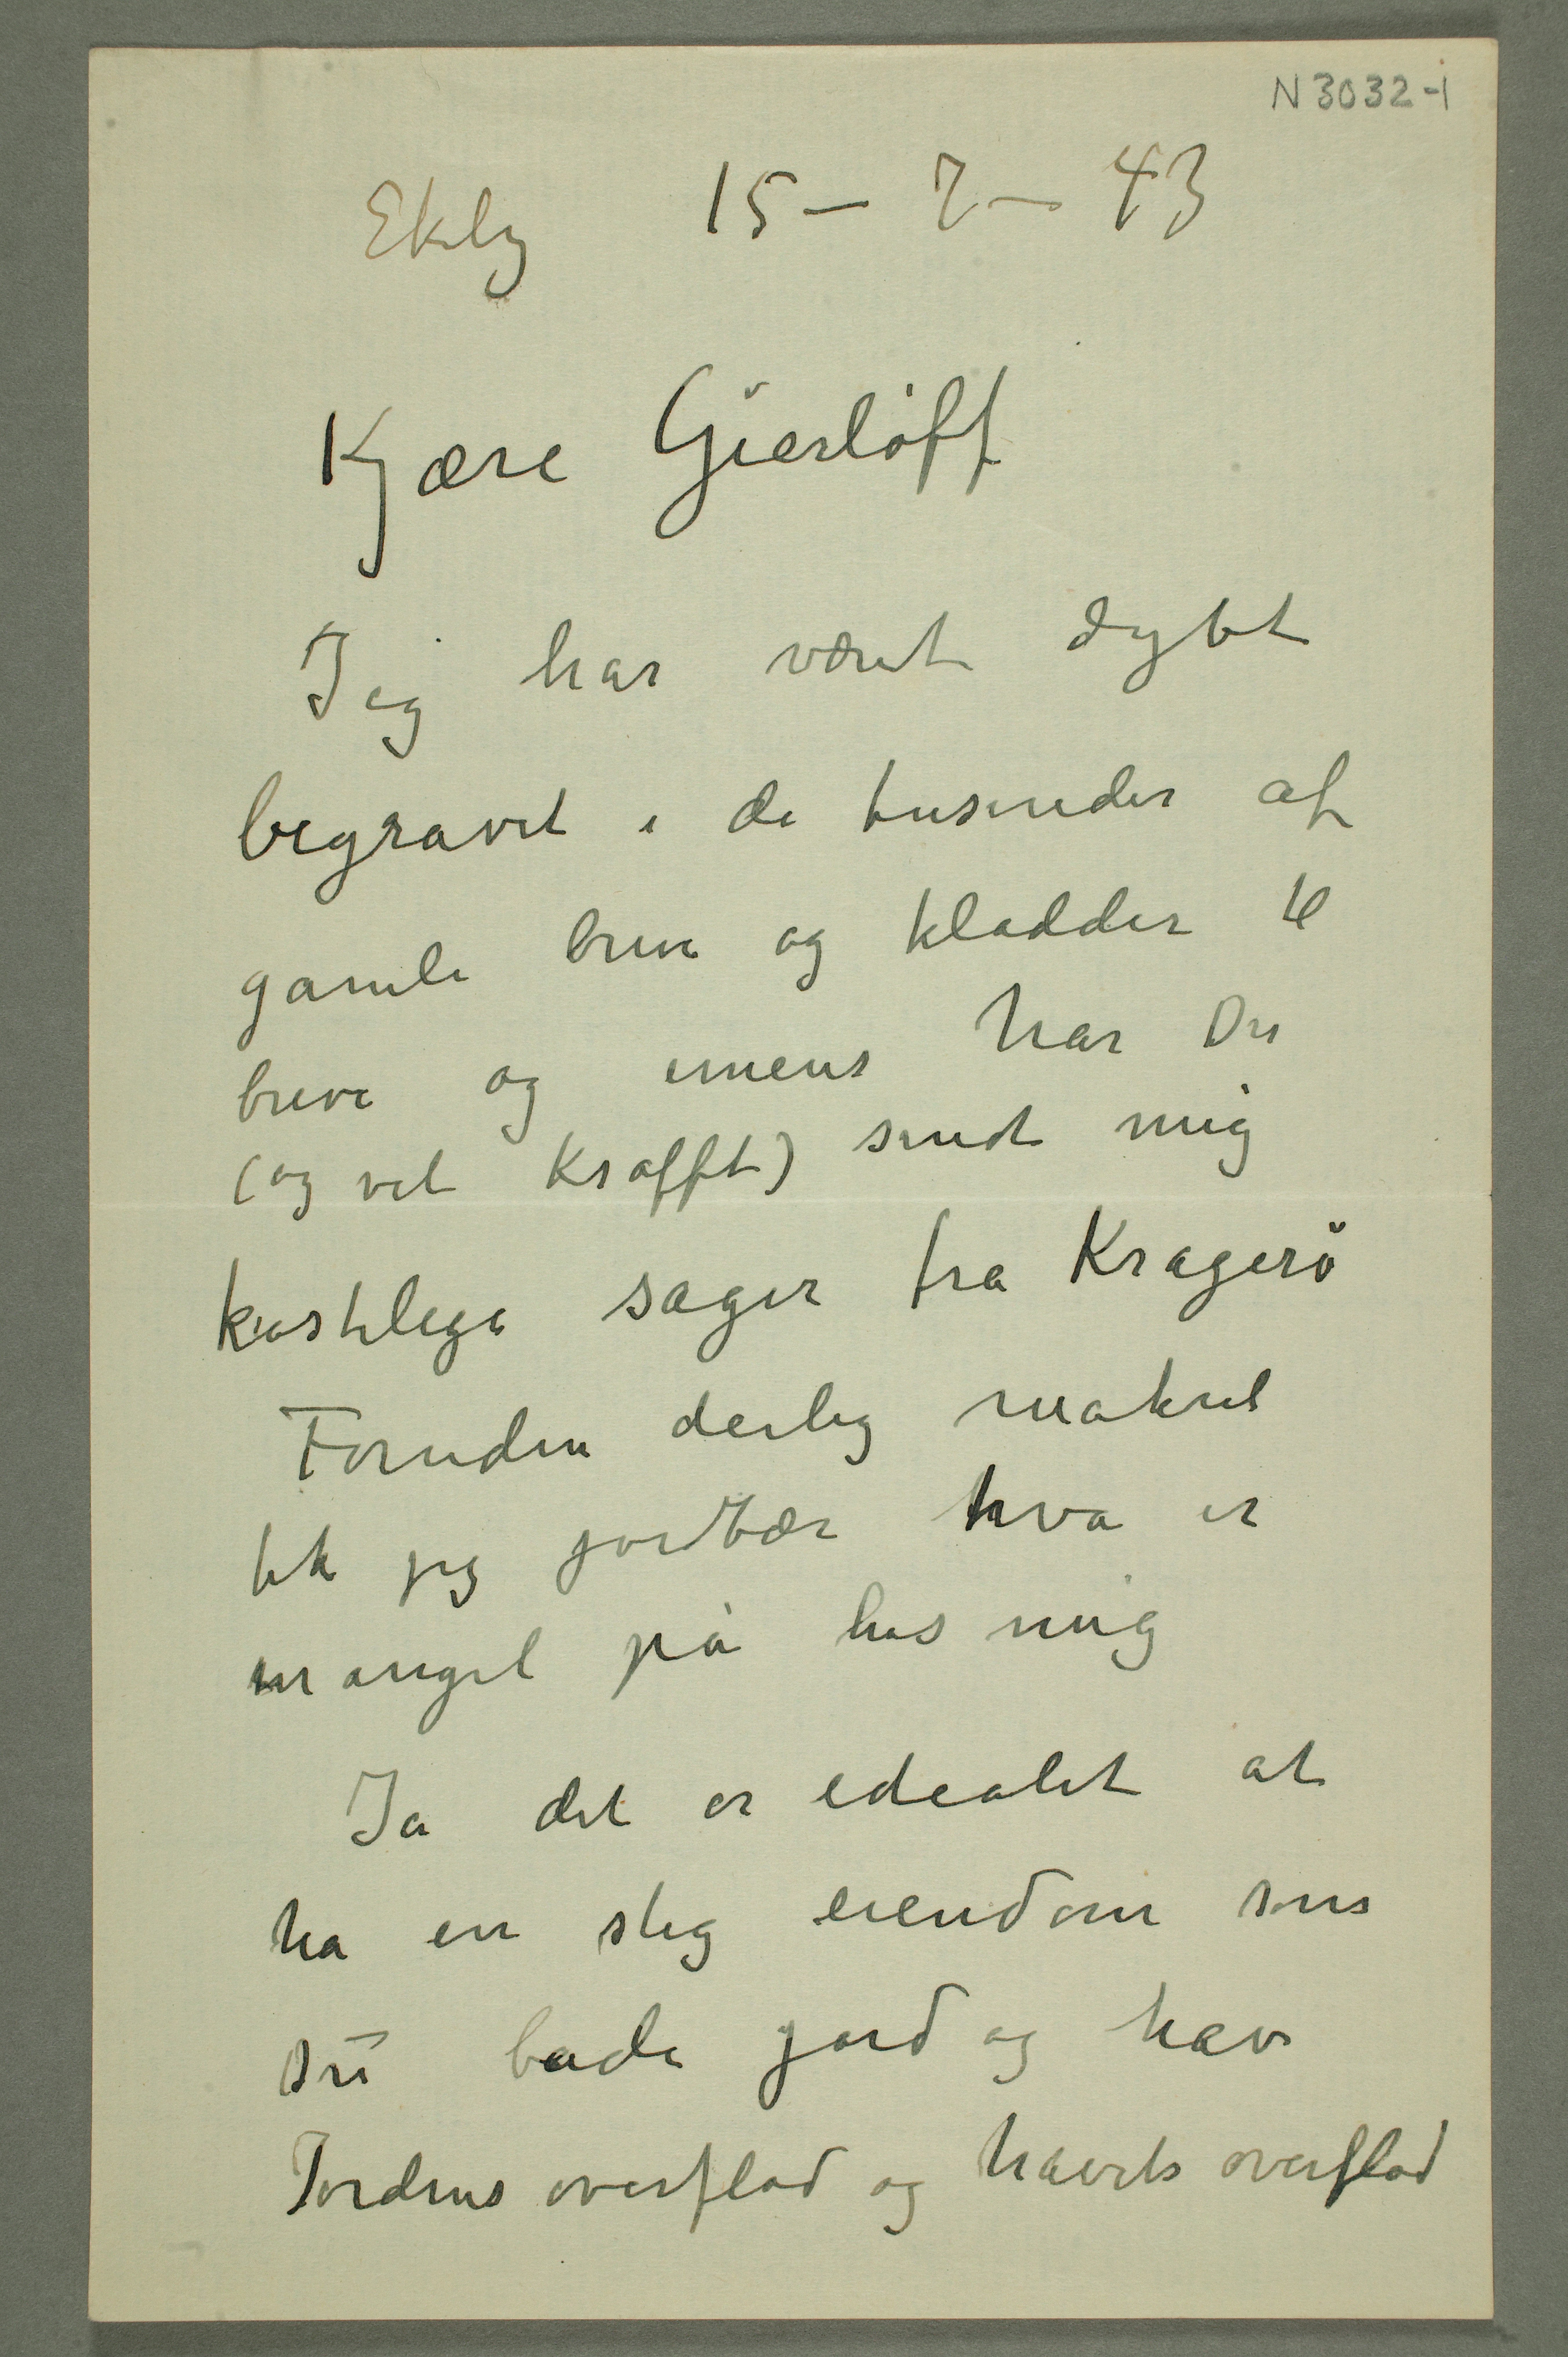 N 3032-1
Ekely 15 – 7 – 43
Kjære Gierløff
Jeg har været dybt
begravet i de tusender af
gamle breve og kladder til
breve og imens har Du
(og vel Krafft) sendt mig
kostelige sager fra Kragerø
Foruden deilig makrel
fik jeg jordbær hva er
mangel på hos mig
Ja det er idealet at
ha en slig eiendom som
Du både jord og hav
Jordens overflod og havets overflod